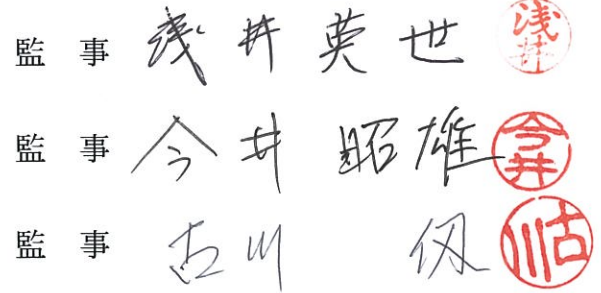 監事 浅井英世 浅井
監事 今井昭雄 今井
監事 古川 古川